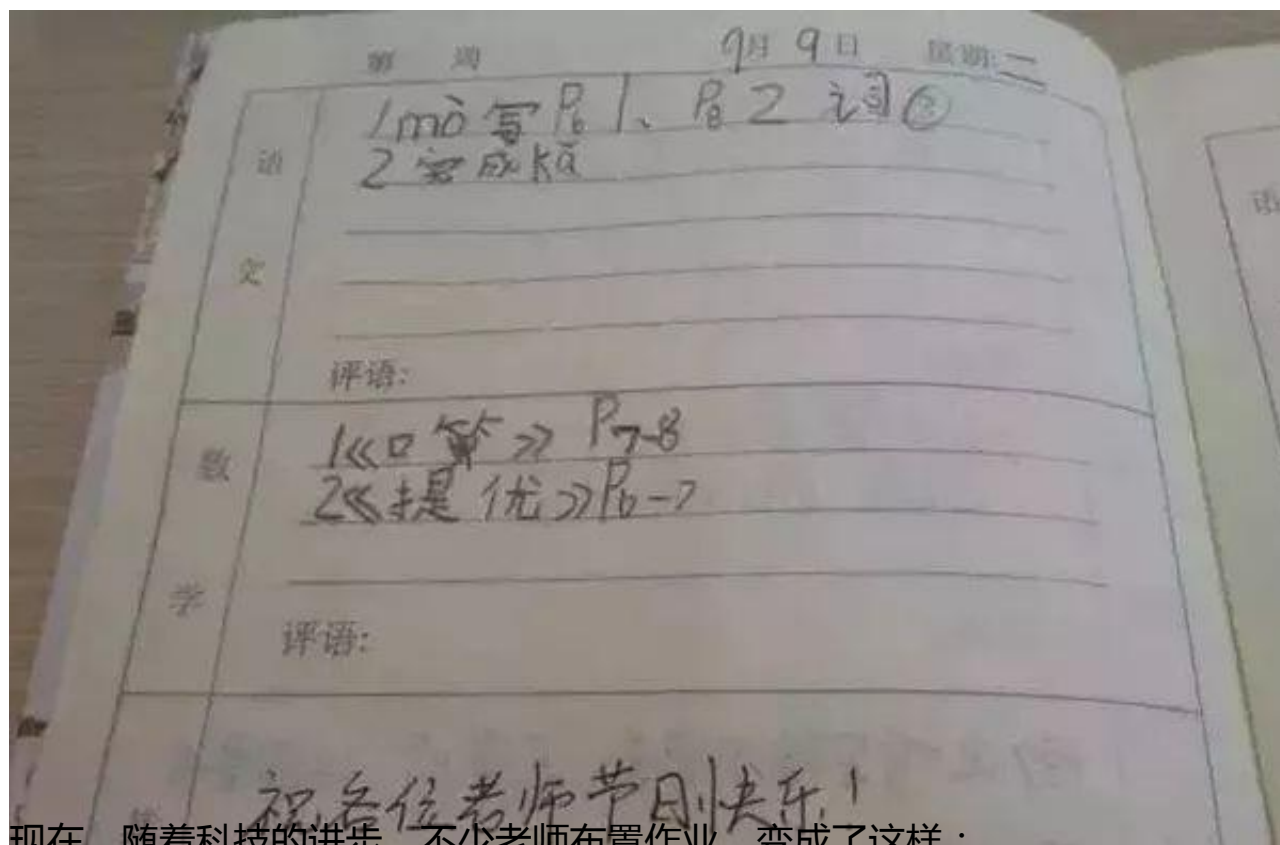 第 周 9月 9日 星期:二
语文
1mò写P6 1、P8 2 词②
2完成kǎ
评语:
数学
1《口算》P7-8
2《提优》P6-7
评语:
祝各位老师节日快乐!
现在,随着科技的进步,不少老师布置作业,变成了这样:
语